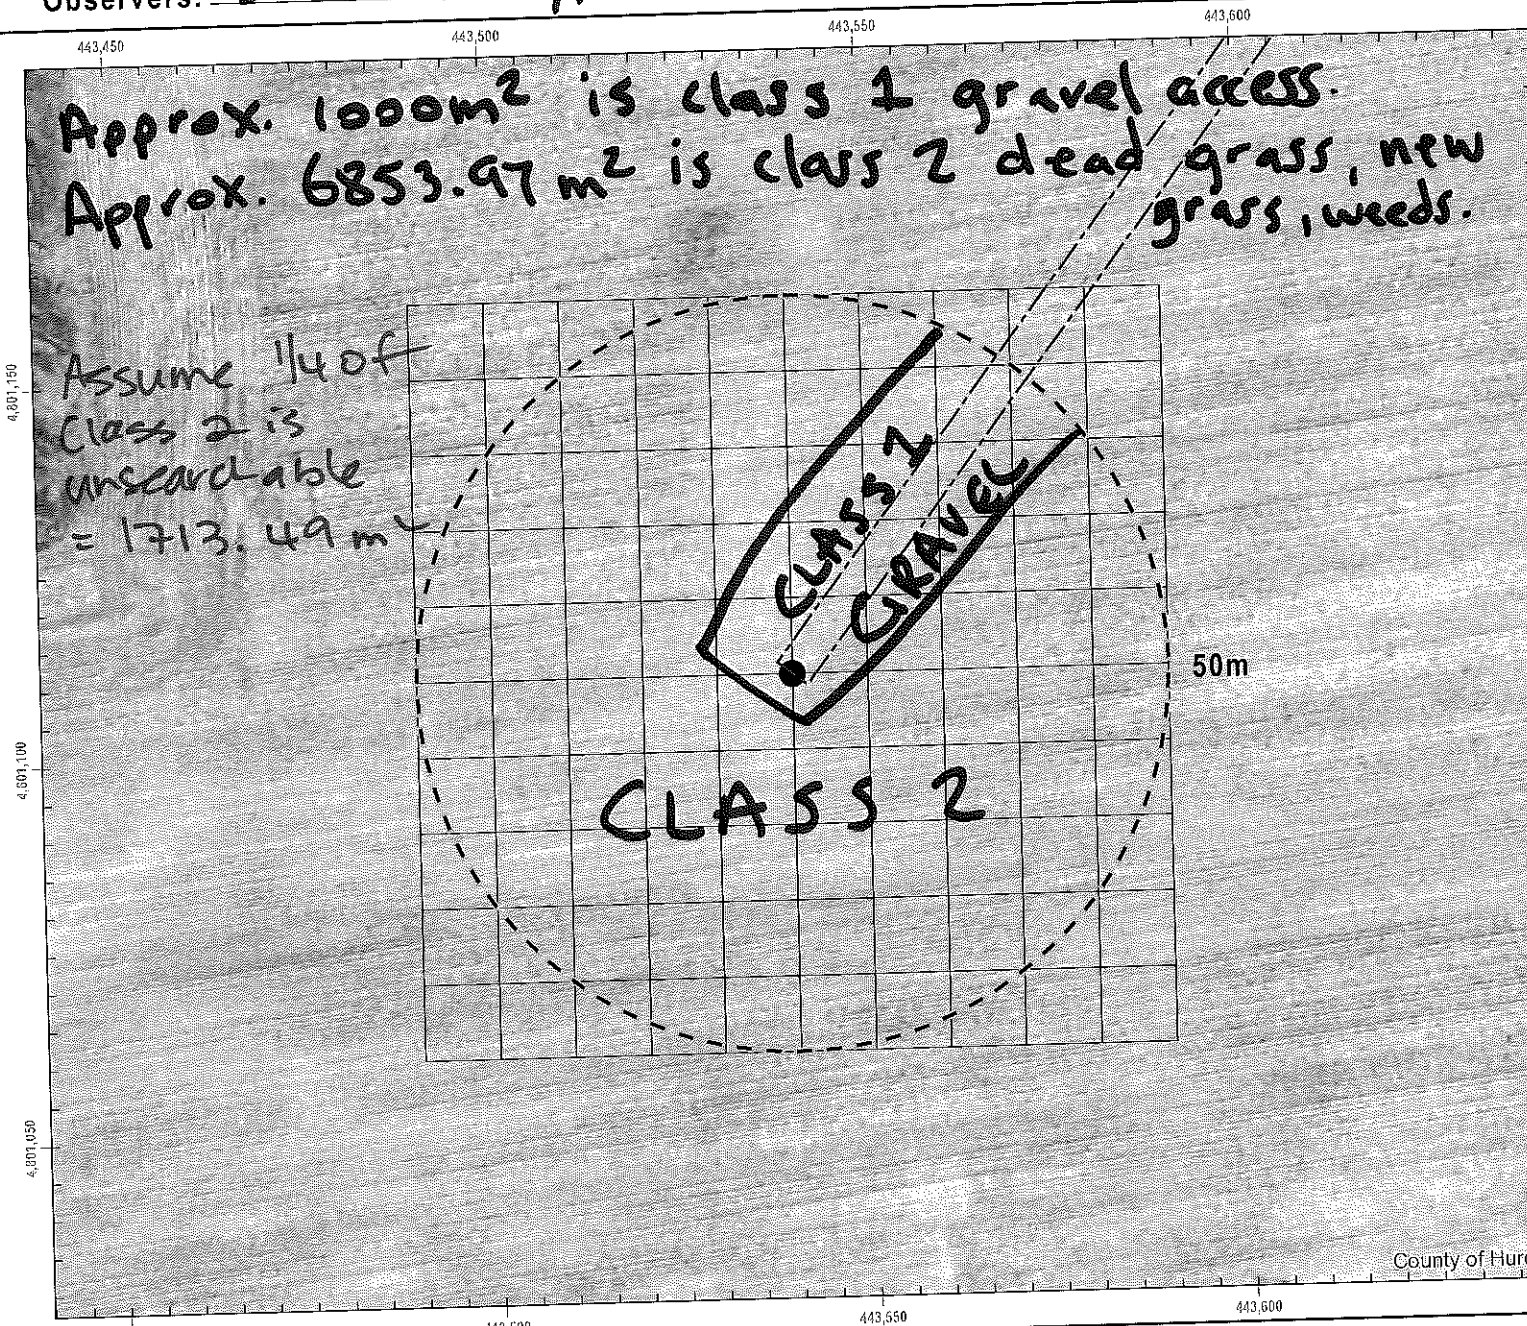 Observers:
443,450 443,500 443,550 443,600
Approx. 1000m² is class 1 gravel access.
Approx. 6853.97 m² is class 2 dead grass, new
grass, weeds.
4,801,150
Assume 1/4 of
Class 2 is
unsearchable
= 1713.49 m²
CLASS 1
GRAVEL
50m
4,801,100
CLASS 2
4,801,050
County of Hur
443,500 443,550 443,600